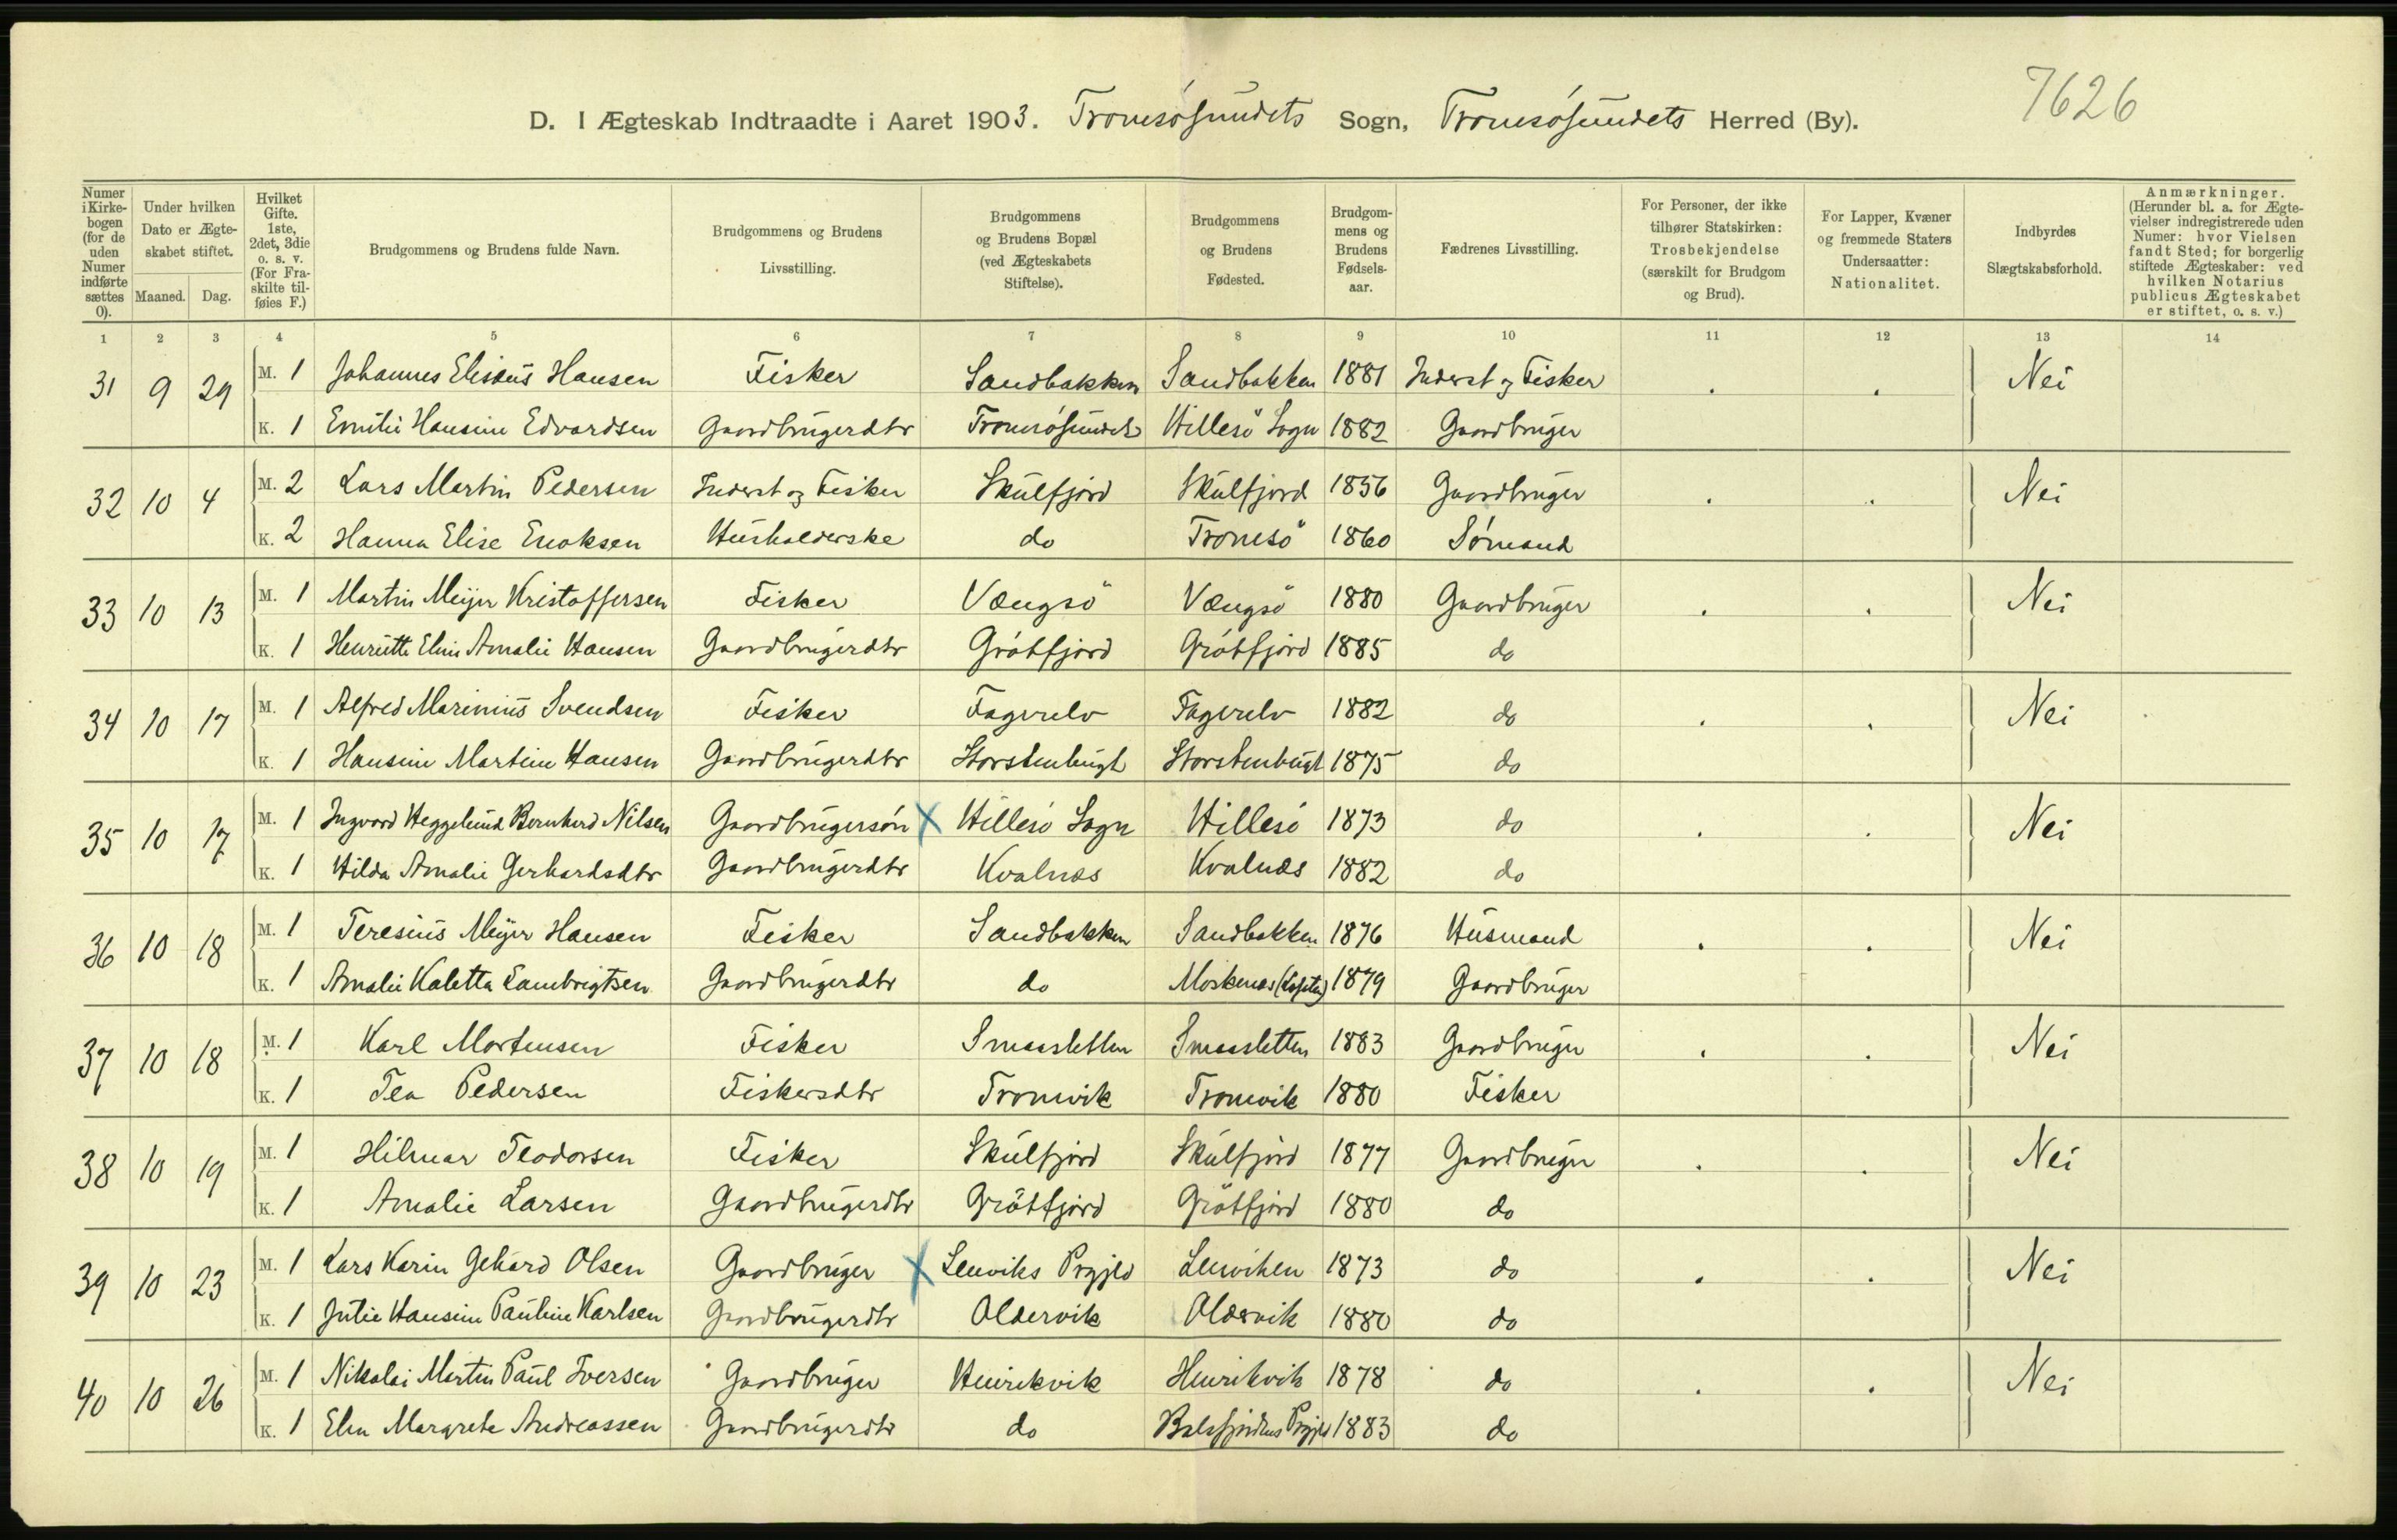 7626
D. I Ægteskab Indtraadte i Aaret 1903. Tromsøsundets Sogn, Tromsøsundets Herred (By).
Numer i Kirke-bogen (for de uden Numer indførte sættes 0). | Under hvilken Dato er Ægte-skabet stiftet. Maaned. Dag. | Hvilket Gifte. 1ste, 2det, 3die o. s. v. (For Fra-skilte til-føies F.) | Brudgommens og Brudens fulde Navn. | Brudgommens og Brudens Livsstilling. | Brudgommens og Brudens Bopæl (ved Ægteskabets Stiftelse). | Brudgommens og Brudens Fødested. | Brudgom-mens og Brudens Fødsels-aar. | Fædrenes Livsstilling. | For Personer, der ikke tilhører Statskirken: Trosbekjendelse (særskilt for Brudgom og Brud). | For Lapper, Kvæner og fremmede Staters Undersaatter: Nationalitet. | Indbyrdes Slægtskabsforhold. | Anmærkninger. (Herunder bl. a. for Ægte-vielser indregistrerede uden Numer: hvor Vielsen fandt Sted; for borgerlig stiftede Ægteskaber: ved hvilken Notarius publicus Ægteskabet er stiftet, o. s. v.)
1 2 3 4 5 6 7 8 9 10 11 12 13 14
31 9 29 M. 1 Johannes Elisæus Hansen Fisker Sandbakken Sandbakken 1881 Inderst og Fisker . . Nei
K. 1 Emilie Hansine Edvardsen Gaardbrugerdtr Tromsøsundet Hillesö Sogn 1882 Gaardbruger
32 10 4 M. 2 Lars Martin Pedersen Inderst og Fisker Skulfjord Skulfjord 1856 Gaardbruger . . Nei
K. 2 Hanna Elise Enoksen Husholderske do Tromsö 1860 Sømand
33 10 13 M. 1 Martin Meijer Kristoffersen Fisker Vængsö Vængsö 1880 Gaardbruger . . Nei
K. 1 Henriette Eline Amalie Hansen Gaardbrugerdtr Grøtfjord Grøtfjord 1885 do
34 10 17 M. 1 Alfred Marinius Svendsen Fisker Fagerelv Fagerelv 1882 do . . Nei
K. 1 Hansine Martine Hansen Gaardbrugerdtr Storstenbugt Storstenbugt 1875 do
35 10 17 M. 1 Ingvard Heggelund Bernhard Nilsen Gaardbrugersøn X Hillesø Sogn Hillesø 1873 do . . Nei
K. 1 Hilda Amalie Gerhardsdtr Gaardbrugerdtr Kvalnæs Kvalnæs 1882 do
36 10 18 M. 1 Teresius Meijer Hansen Fisker Sandbakken Sandbakken 1876 Husmand . . Nei
K. 1 Amalie Kaletta Lambrigtsen Gaardbrugerdtr do Moskenæs (Lofoten) 1879 Gaardbruger
37 10 18 M. 1 Karl Mortensen Fisker Smaasletten Smaasletten 1883 Gaardbruger . . Nei
K. 1 Tea Pedersen Fiskersdtr Tromvik Tromvik 1880 Fisker
38 10 19 M. 1 Hilmar Teodorsen Fisker Skulfjord Skulfjord 1877 Gaardbruger . . Nei
K. 1 Amalie Larsen Gaardbrugerdtr Grötfjord Grötfjord 1880 do
39 10 23 M. 1 Lars Karin Gehard Olsen Gaardbruger X Lenviks Prgjld Lenviken 1873 do . . Nei
K. 1 Julie Hansine Pauline Karlsen Gaardbrugerdtr Oldervik Oldervik 1880 do
40 10 26 M. 1 Nikolai Martin Paul Iversen Gaardbruger Henrikvik Henrikvik 1878 do . . Nei
K. 1 Elen Margrete Andreassen Gaardbrugerdtr do Balsfjordens Prgjld 1883 do